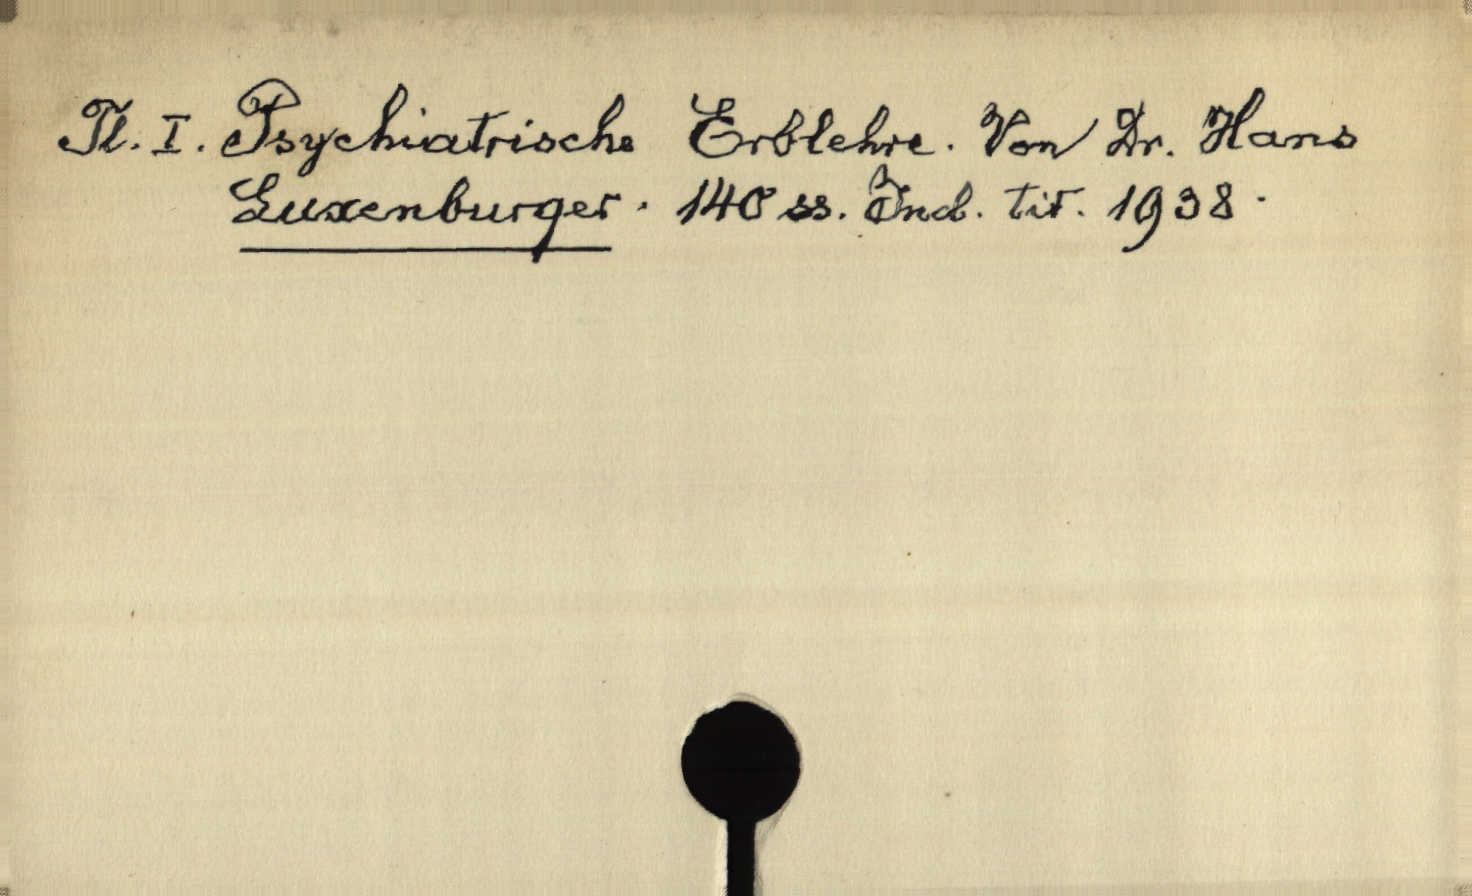 Tl. I. Psychiatrische Erblehre. Von Dr. Hans
Luxenburger. 140 ss. Incl. tit. 1938.